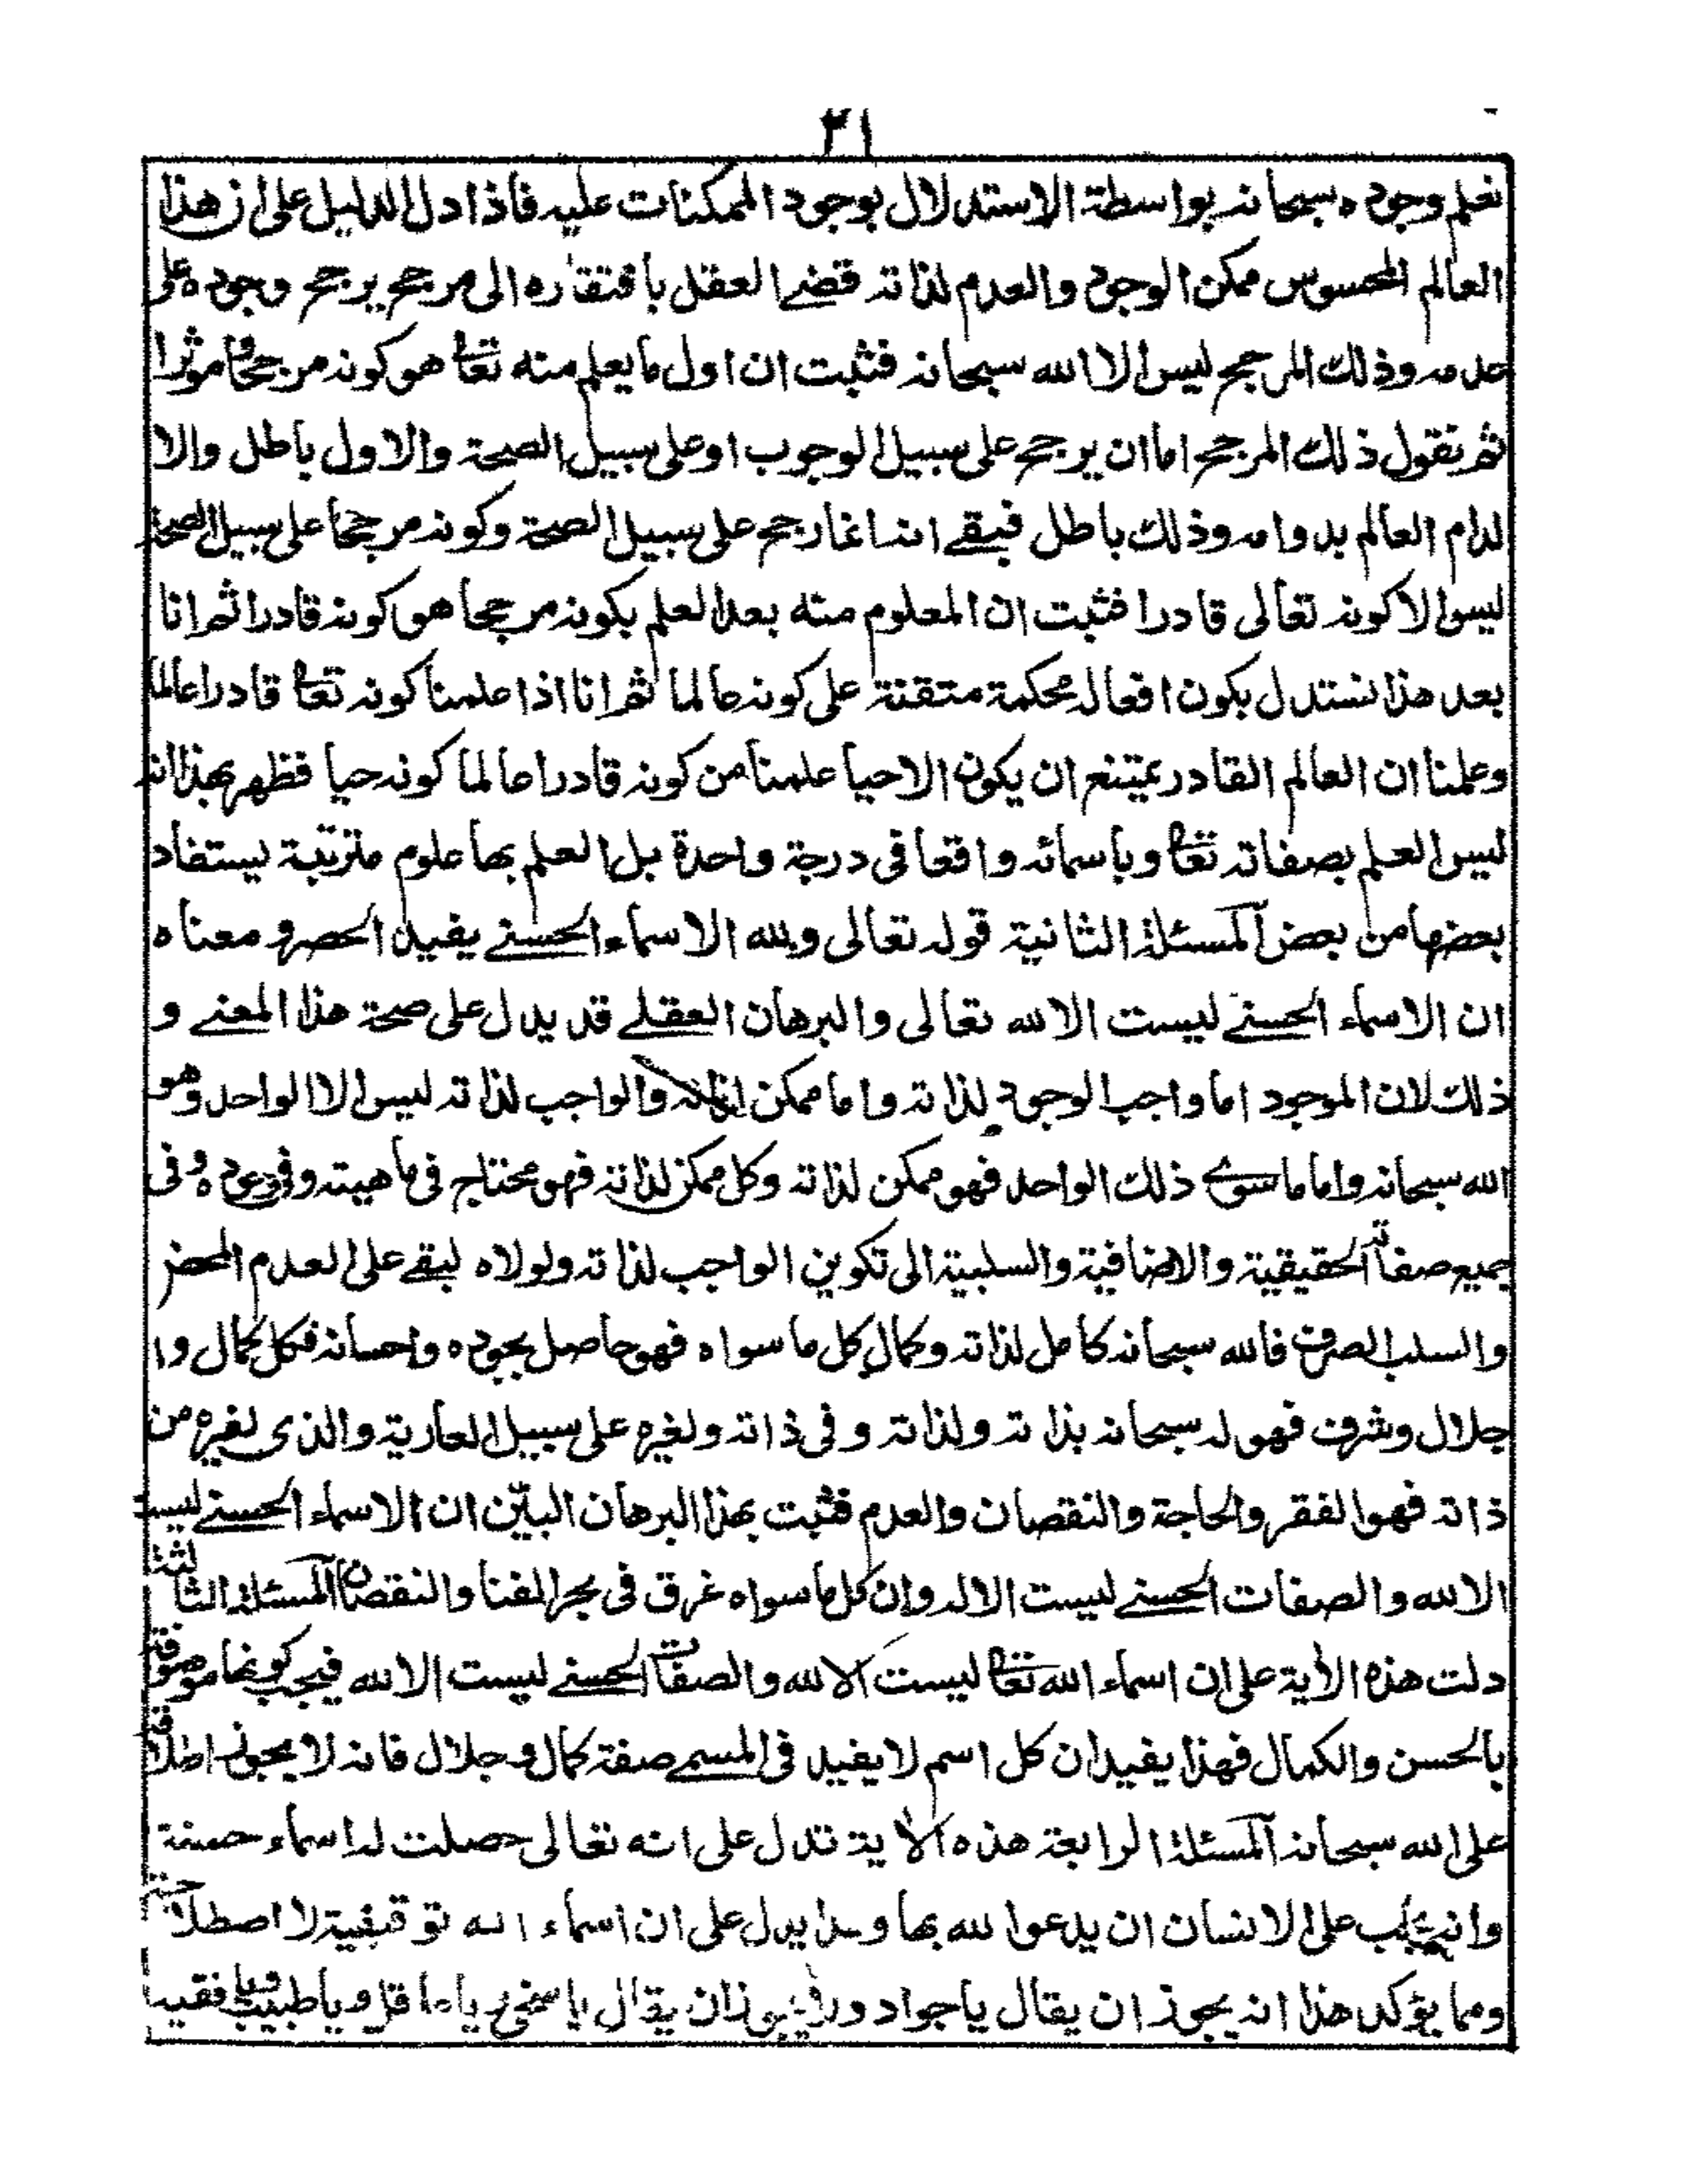 ٢١
نعلم وجوده سبحانه بواسطة الاستدلال بوجود الممكنات عليه فاذا دل الدليل على ان هذا
العالم المحسوس ممكن الوجود والعدم لذاته قضى العقل بافتقاره الى مرجح يرجح وجوده على
عدمه وذلك المرجح ليس الا الله سبحانه فثبت ان اول ما يعلم منه تعالى هو كونه مرجحا وموثرا
ثم نقول ذلك المرجح اما ان يرجح على سبيل الوجوب او على سبيل الصحة والاول باطل والا
لدام العالم بدوامه وذلك باطل فبقى انه انما رجح على سبيل الصحة وكونه مرجحا على سبيل الصحة
ليس الا كونه تعالى قادرا فثبت ان المعلوم منه بعد العلم بكونه مرجحا هو كونه قادرا ثم انا
بعد هذا نستدل بكون افعاله محكمة متقنة على كونه عالما ثم انا اذا علمنا كونه تعالى قادرا عالما
وعلمنا ان العالم القادر يمتنع ان يكون الا حيا علمنا من كونه قادرا عالما كونه حيا فظهر بهذا انه
ليس العلم بصفاته تعالى وباسمائه واقعا فى درجة واحدة بل العلم بها علوم مترتبة يستفاد
بعضها من بعض المسئلة الثانية قوله تعالى ولله الاسماء الحسنى يفيد الحصر ومعناه
ان الاسماء الحسنى ليست الا لله تعالى والبرهان العقلى قد يدل على صحة هذا المعنى و
ذلك لان الموجود اما واجب الوجود لذاته واما ممكن لذاته والواجب لذاته ليس الا الواحد وهو
الله سبحانه واما ما سوى ذلك الواحد فهو ممكن لذاته وكل ممكن لذاته فهو محتاج فى ماهيته وفى وجوده وفى
جميع صفاته الحقيقية والاضافية والسلبية الى تكوين الواجب لذاته ولولاه لبقى على العدم المحض
والسلب الصرف فالله سبحانه كامل لذاته وكمال كل ما سواه فهو حاصل بجوده واحسانه فكل كمال وا
جلال وشرف فهو له سبحانه بذاته ولذاته وفى ذاته ولغيره على سبيل العارية والذى لغيره من
ذاته فهو الفقر والحاجة والنقصان والعدم فثبت بهذا البرهان البيّن ان الاسماء الحسنى ليست
الا لله والصفات الحسنى ليست الا له وان كل ما سواه غرق فى بحر الفنا والنقصان المسئلة الثالثة
دلت هذه الأية على ان اسماء الله تعالى ليست الا لله والصفات الحسنى ليست الا لله فيجب كونها موصوفة
بالحسن والكمال فهذا يفيد ان كل اسم لا يفيد فى المسمى صفة كمال وجلال فانه لا يجوز اطلاقه
على الله سبحانه المسئلة الرابعة هذه الأية تدل على انه تعالى حصلت له اسماء حسنة
وانه يجب على الانسان ان يدعوا لله بها وهذا يدل على ان اسماء الله توقيفية لا اصطلاحية
ومما يؤكد هذا انه يجوز ان يقال يا جواد ولا يجوز ان يقال يا سخى ويا عاقل ويا طبيب ويا فقيه